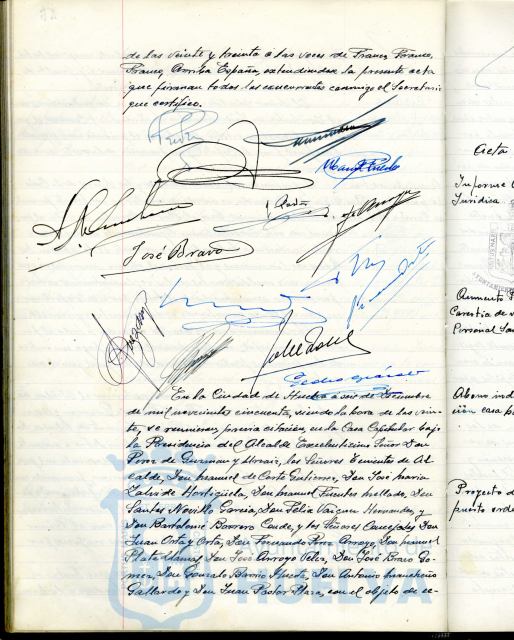 de las veinte y treinta a las voces de Franco, Franco,
Franco, Arriba España, extendiendose la presente acta
que firmaran todos los concurrentes conmigo el Secretario
que certifico.
José Bravo
En la Ciudad de Huelva a seis de Diciembre
de mil novecientos cincuenta, siendo la hora de las vein-
te, se reunieron, previa citación, en la Casa Capitular bajo
la Presidencia del Alcalde Excelentisimo Señor Don
Perez de Guzman y Urzaiz, los Señores Tenientes de Al-
calde, Don Manuel de Corte Gutierrez, Don José Maria
de Hortigüela, Don Manuel Fuentes Mellado, Don
Santos Garcia, Don Felix Vazquez Hernandez, y
Don Bartolomé Borrero Conde, y los Señores Concejales Don
Juan Orta y Orta, Don Fernando Perez Arroyo, Don Manuel
Plata Llamas, Don José Arroyo Velez, Don José Bravo Go-
mez, Don Gonzalo Barrio Don Antonio
Gallardo y Don Juan Pastor Plaza, con el objeto de ce-
HUELVA
Acta
Informe
Juridica.
Aumento
Carestia de v
Personal San
Abono ind
ción casa p
Proyecto d
puesto orde